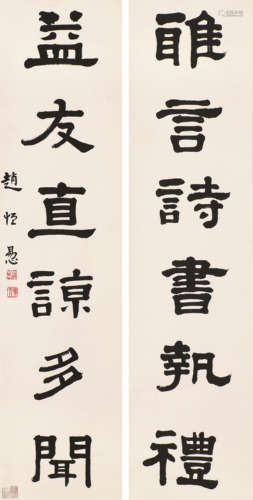 雅言詩書執禮
益友直諒多聞
趙恒惖